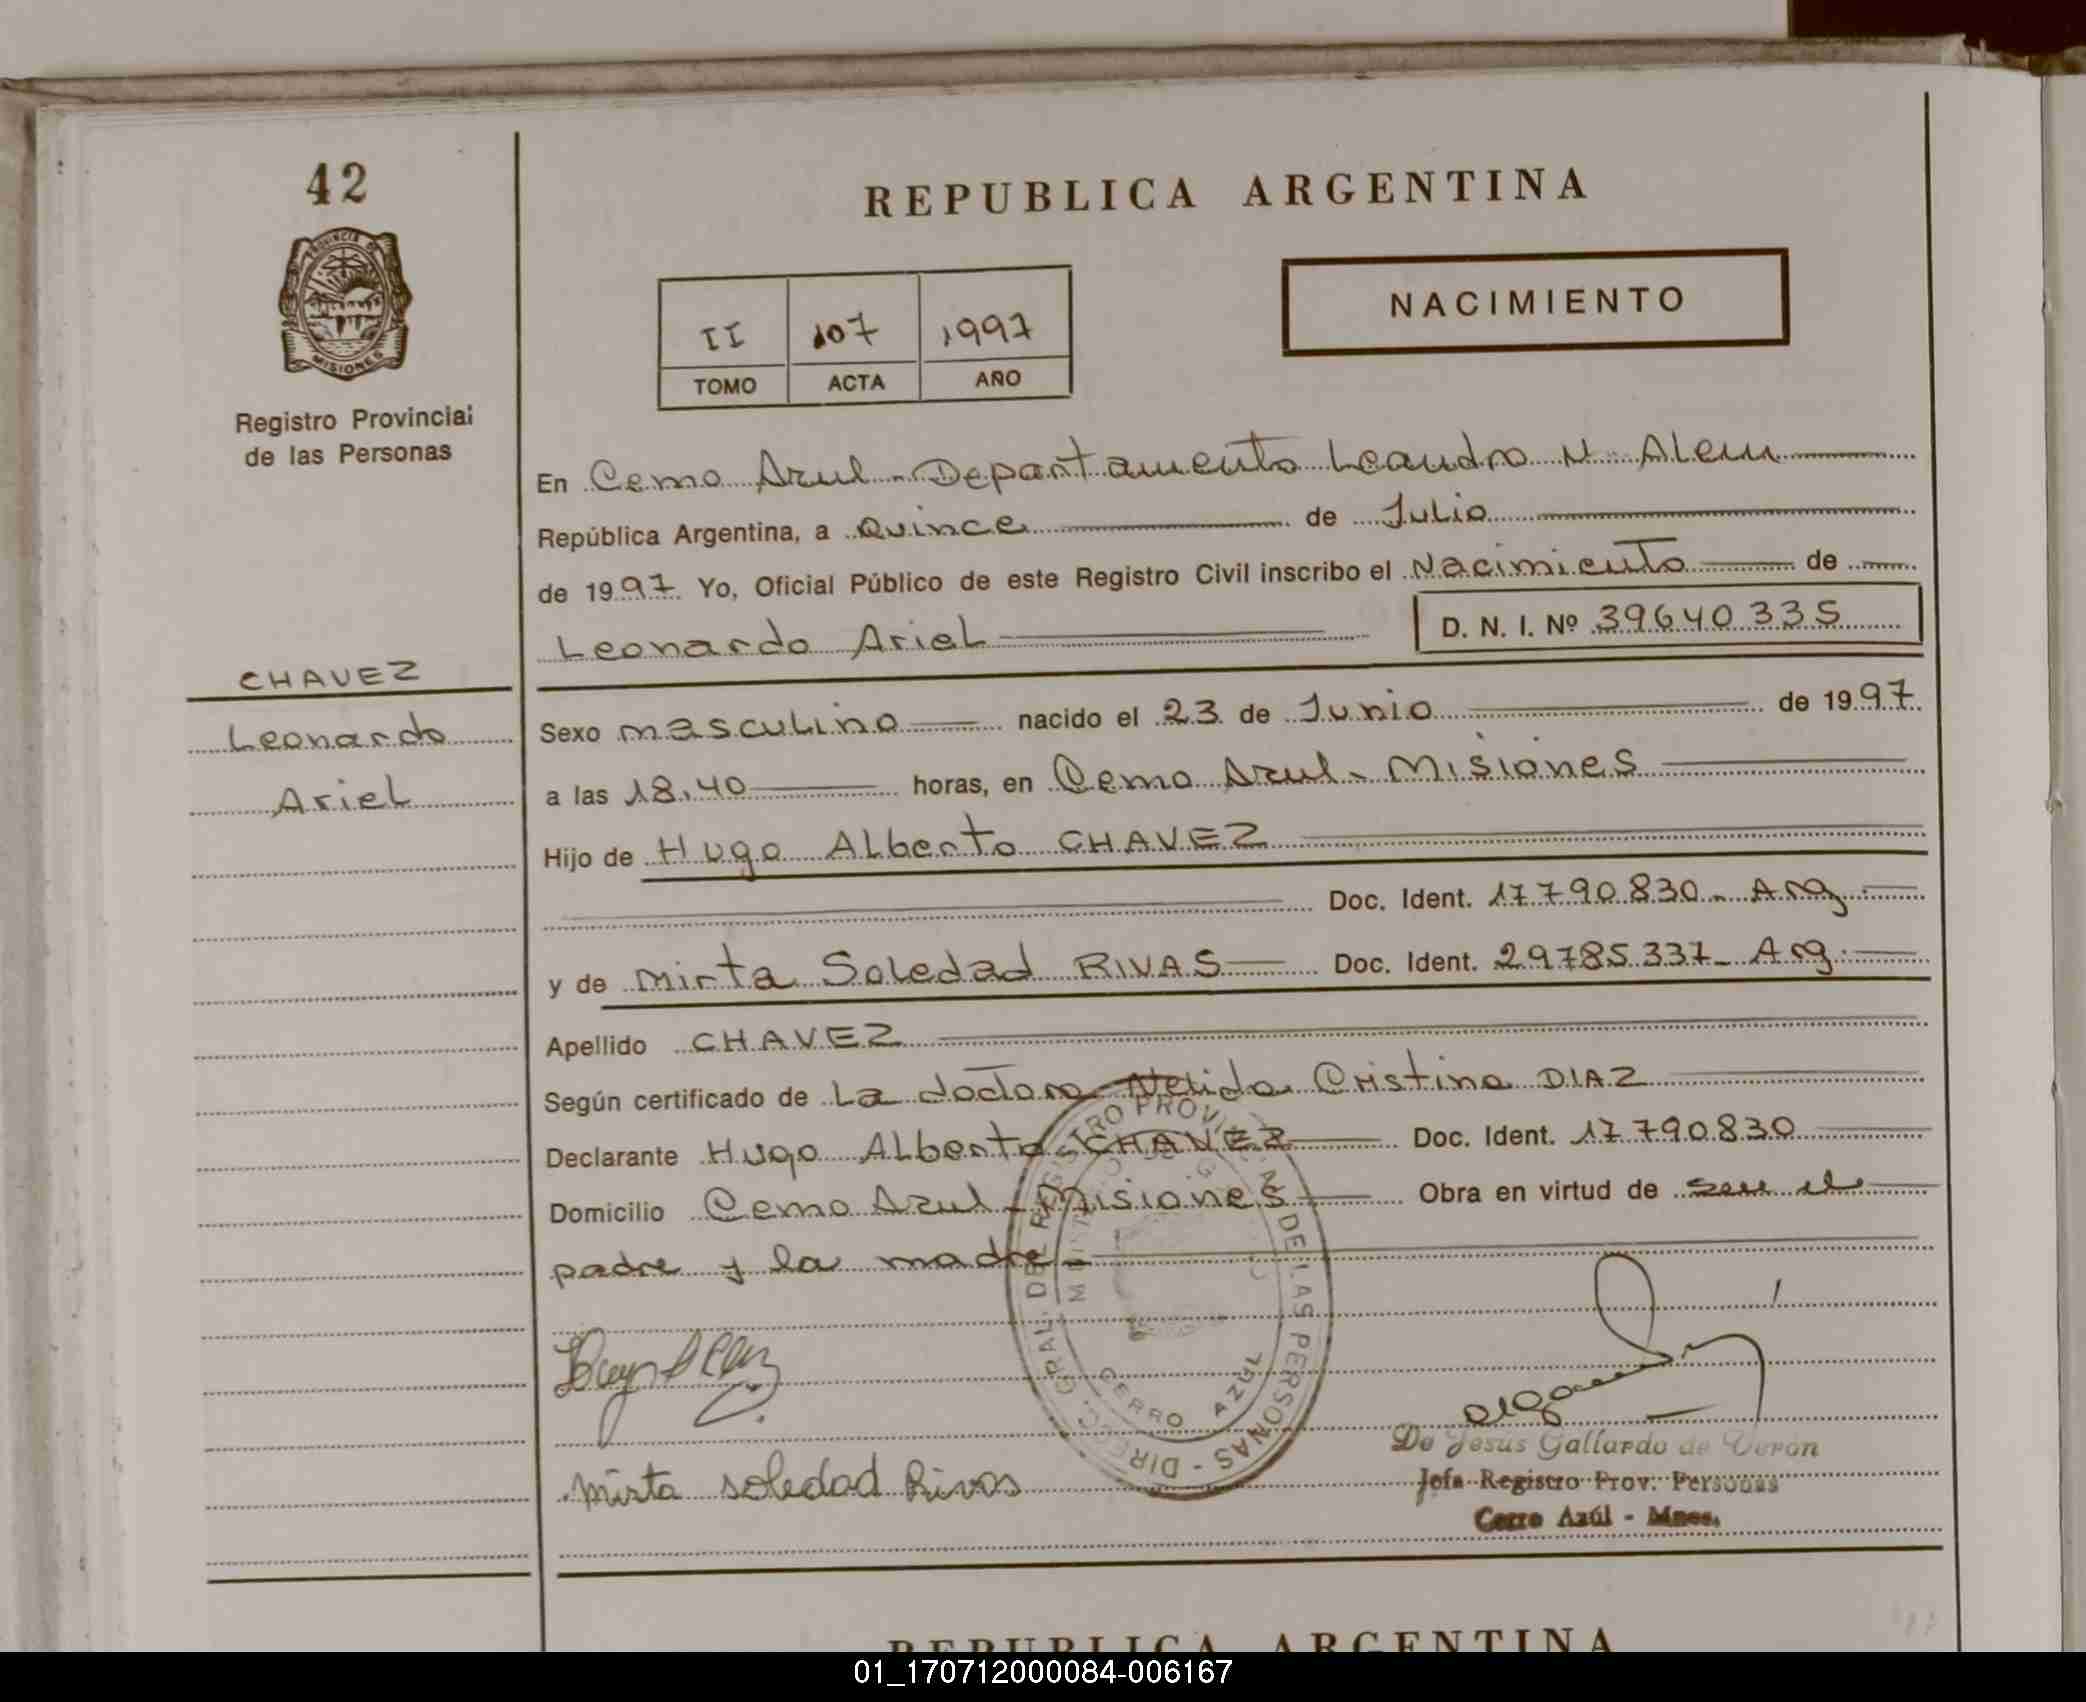 42
PROVINCIA DE
MISIONES
Registro Provincial
de las Personas
REPUBLICA ARGENTINA
NACIMIENTO
II 107 1997
TOMO ACTA AÑO
En Cerro Azul - Departamento Leandro N. Alem
República Argentina, a Quince de Julio
de 1997 Yo, Oficial Público de este Registro Civil inscribo el Nacimiento de
Leonardo Ariel D. N. I. Nº 39640335
CHAVEZ
Leonardo
Ariel
Sexo masculino nacido el 23 de Junio de 1997.
a las 18,40 horas, en Cerro Azul - Misiones
Hijo de Hugo Alberto CHAVEZ
Doc. Ident. 17790.830 - Arg.
y de Mirta Soledad RIVAS Doc. Ident. 29785.337 - Arg.
Apellido CHAVEZ
Según certificado de La doctora Nelida Cristina DIAZ
Declarante Hugo Alberto CHAVEZ Doc. Ident. 17790830
Domicilio Cerro Azul - Misiones Obra en virtud de ser el
padre y la madre -
DIREC. GRAL. DEL REGISTRO PROVINCIAL DE LAS PERSONAS -
CERRO AZUL
Mirta Soledad Rivas
De Jesús Gallardo de Verón
Jefa Registro Prov. Personas
Cerro Azúl - Mnes.
REPUBLICA ARGENTINA
01_170712000084-006167